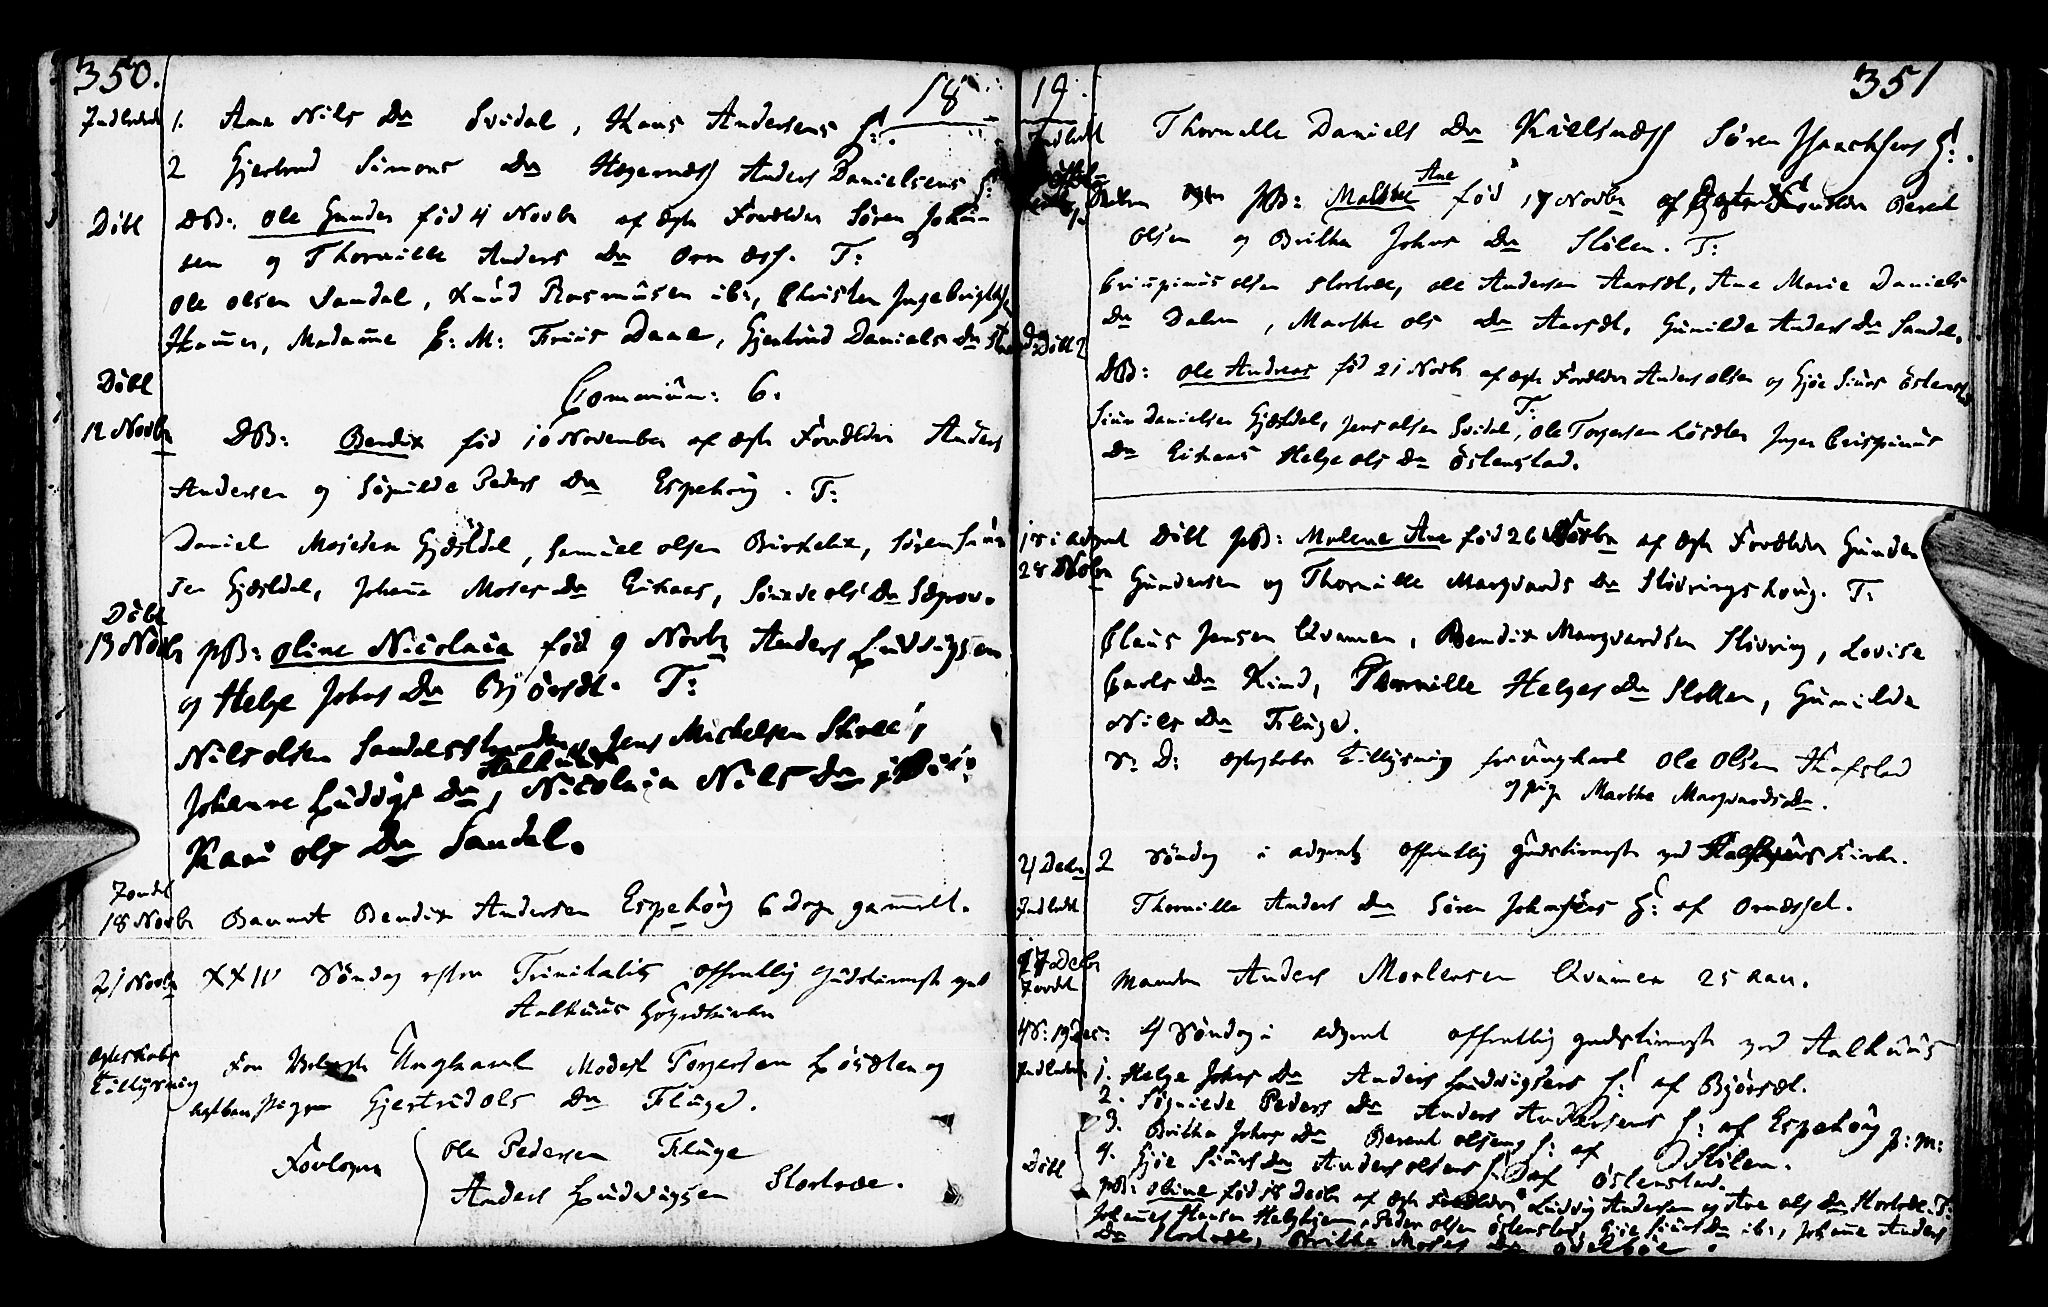 350.
18
Indledede 1. Ane Nils Da Svidal, Hans Andersens H:
2 Gjertrud Simons Da Hegernæss Anders Danielsens H:
Döbt DB: Ole Gunder föd 4 Novbr af ægte Forældre Sören Johan
sen og Thornille Anders Da Ornæss. T:
Ole Olsen Sandal, Knud Rasmusen ibi, Christen Ingebrigtsen
Hammer, Madame C: M: Friis Daae, Gjertrud Daniels Da
Döbt Communic: 6.
12 Novbr DB: Bendix föd 10 November af ægte Forældre Anders
Andersen og Sögnilde Peders Da Espehoug. T:
Daniel Mosesen Gjesdal, Samuel Olsen Birkelie, Sören Siur
sen Gjesdal, Johanne Moses Da Eikaas, Ols Da Segrov.
Döbt
13 Novbr pB: Oline Nicolaia föd 9 Novbr Anders Ludvigsen
og Helge Johns Da Björset. T:
Nils Olsen Sandalsstranden, Jens Michelsen Skree,
Johanne Ludvigs Da Aalhuus, Nicolaia Nils Da ibi:
Kari Ols Da Sandal.
Jordet
18 Novbr Barnet Bendix Andersen Espehoug 6 Dage gammelt.
21 Novbr XXIV Söndag efter Trinitatis offentlig Gudstieneste ved
Aalhuus Hovedkirke
Ægteskabs
Tillysning For Ungkarl Modest Torgersen Lösæten og
Gjertrud Ols Da Fluge.
Forlovere Ole Pedersen Fluge
Anders Ludvigsen Stortræe.
19.
351
Indledt Thornille Daniels Da Kielsnæss Sören Isaachsens H:
pB: Malthe Ane föd 17 Novbr af Forældre Berent
Olsen og Britha Johns Da Stölen. T:
Crispinus Olsen Stortræe, Ole Andersen Aarset, Ane Marie Daniels
Da Dalen, Marthe Ols Da Aarset, Gunilde Anders Da Sandal.
Döbt 2 DB: Ole Andreas föd 21 Novbr af ægte Forældre Anders Olsen og Gjöe Siurs Östenstad
T:
Siur Danielsen Gjesdal, Jens Olsen Svidal, Ole Torgersen Lösæten Inger Crispinus
Da Eikaas Helge Ols Da Östenstad.
1 S: i Advent Döbt pB: Malene Ane föd 26 Novbr af ægte Forældre Gunder
28 Novbr Gundersen og Thornille Marqvards Da Slivringshoug. T:
Claus Jensen Qvamen, Bendix Marqvardsen Slivring, Lovise
Carls Da Kind, Thornille Helges Da Slotten, Gunilde
Nils Da Fluge.
S: D: ægteskabs Tillysning for Ungkarl Ole Olsen Hafstad
og pige Marthe Marqvards Da.
2 Söndag i Advent offentlig Gudstieneste ved Aalhuus Kirke.
Indledt Thornille Anders Da Sören Johnsens H: af Ornæsset.
17 Decbr
Jordet Manden Anders Mortensen Qvamen 25 Aar.
4 S: 19 Dec: 4 Söndag i Advent offentlig Gudstieneste ved Aalhuus
Indledede 1. Helge Johns Da Anders Ludvigsens H: af Björset.
2. Sögnilde Peders Da Anders Andersens H: af Espehoug p: m:
3. Britha Johns Da Berent Olsens H: af Stölen.
4. Gjöe Siurs Da Anders Olsens H: af Östenstad.
Döbt pB: Oline föd 18 Decbr af ægte Forældre Ludvig Andersen og Ane Ols Da Stortræe. T:
Johannes Hansen Helgheim, Peder Olsen Östenstad, Gjöe Siurs Da ibi, Johanne Anders
Da Stortræe, Britha Moses Da